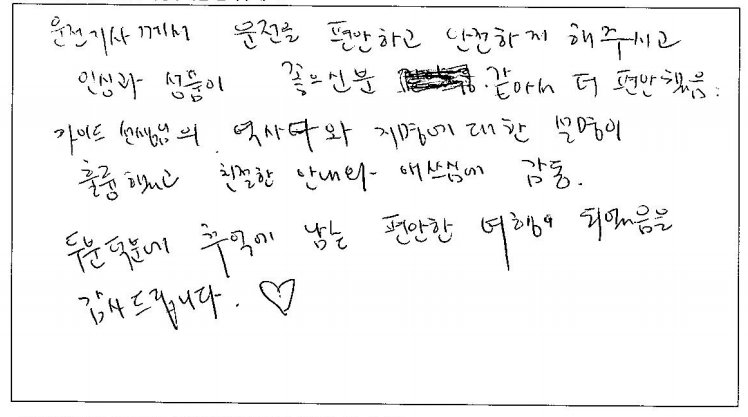 운전기사께서 운전을 편안하고 안전하게 해주시고
인상과 성품이 좋으신분 같아서 더 편안했음.
가이드 선생님의 역사와 지명에 대한 설명이
훌륭했고 친절한 안내와 애쓰심에 감동.
두분덕분에 추억에 남는 편안한 여행이 되었음을
감사드립니다. ♡